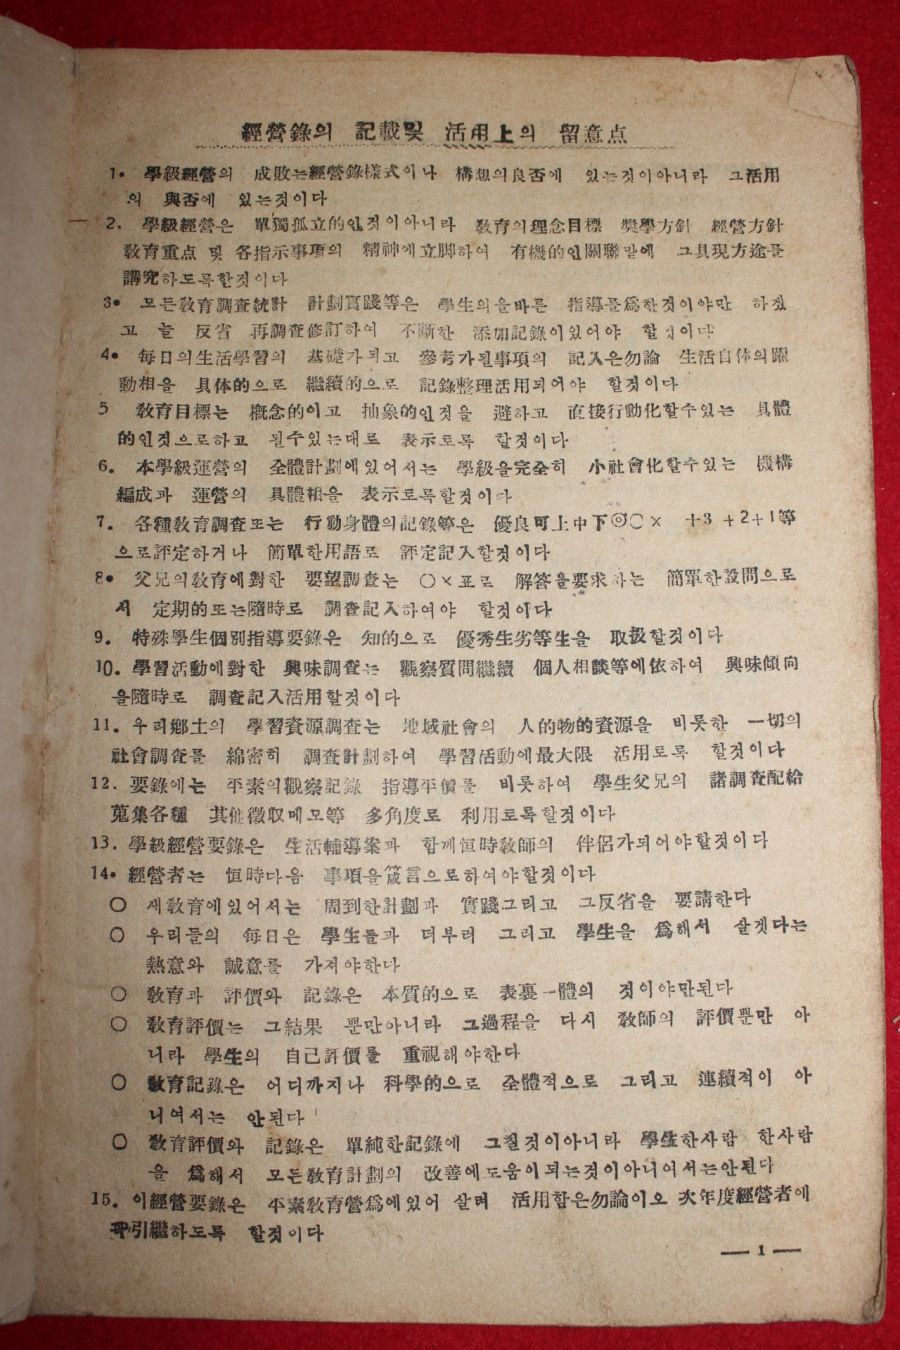 經營錄의 記載및 活用上의 留意点
1. 學級經營의 成敗는經營錄樣式이나 構想의良否에 있는것이아니라 그活用
의 與否에 있는것이다
2. 學級經營은 單獨孤立的인것이아니라 敎育의理念目標 奬學方針 經營方針
敎育重点 및 各指示事項의 精神에立脚하여 有機的인關聯밑에 그具現方途를
講究하도록할것이다
3. 모든敎育調査統計 計劃實踐等은 學生의올바른 指導를爲한것이야만 하겠
고 늘 反省 再調査修訂하여 不斷한 添加記錄이있어야 할것이다
4. 每日의生活學習의 基礎가되고 參考가될事項의 記入은勿論 生活自体의躍
動相을 具体的으로 繼續的으로 記錄整理活用되어야 할것이다
5 敎育目標는 槪念的이고 抽象的인것을 避하고 直接行動化할수있는 具體
的인것으로하고 될수있는대로 表示토록 할것이다
6. 本學級運營의 全體計劃에있어서는 學級을完全히 小社會化할수있는 機構
編成과 運營의 具體相을 表示토록할것이다
7. 各種敎育調査또는 行動身體의記錄等은 優良可上中下◎○× +3 +2+1等
으로評定하거나 簡單한用語로 評定記入할것이다
8. 父兄의敎育에對한 要望調査는 ○×표로 解答을要求하는 簡單한設問으로
서 定期的또는隨時로 調査記入하여야 할것이다
9. 特殊學生個別指導要錄은 知的으로 優秀生劣等生을 取扱할것이다
10. 學習活動에對한 興味調査는 觀察質問繼續 個人相談等에依하여 興味傾向
을隨時로 調査記入活用할것이다
11. 우리鄕土의 學習資源調査는 地域社會의 人的物的資源을 비롯한 一切의
社會調査를 綿密히 調査計劃하여 學習活動에最大限 活用토록 할것이다
12. 要錄에는 平素의觀察記錄 指導平價를 비롯하여 學生父兄의 諸調査配給
蒐集各種 其他徵収메모等 多角度로 利用토록할것이다
13. 學級經營要錄은 生活輔導案과 함께恒時敎師의 伴侶가되어야할것이다
14. 經營者는 恒時다음 事項을箴言으로하여야할것이다
○ 새敎育에있어서는 周到한計劃과 實踐그리고 그反省을 要請한다
○ 우리들의 每日은 學生들과 더부러 그리고 學生을 爲해서 살겟다는
熱意와 誠意를 가저야한다
○ 敎育과 評價와 記錄은 本質的으로 表裏一體의 것이야만된다
○ 敎育評價는 그結果 뿐만아니라 그過程을 다시 敎師의 評價뿐만 아
니라 學生의 自己評價를 重視해야한다
○ 敎育記錄은 어디까지나 科學的으로 全體적으로 그리고 連續적이 아
니여서는 안된다
○ 敎育評價와 記錄은 單純한記錄에 그칠것이아니라 學生한사람 한사람
을 爲해서 모든敎育計劃의 改善에도움이되는것이아니여서는안된다
15. 이經營要錄은 平素敎育營爲에있어 살며 活用함은勿論이오 次年度經營者에
引繼하도록 할것이다
— 1 —